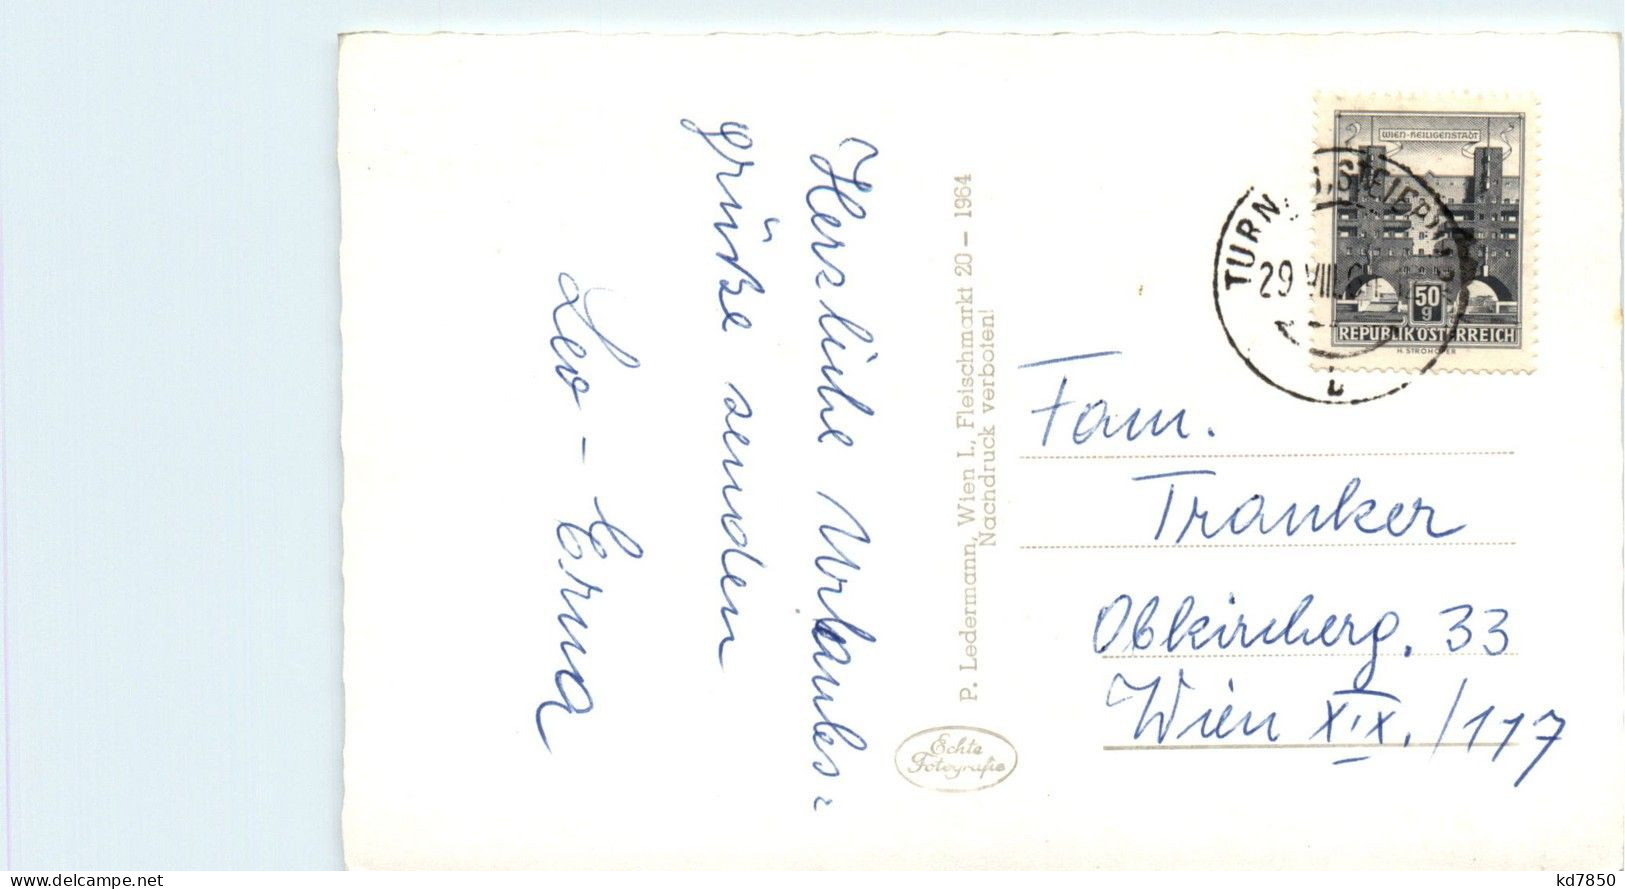 Herzliche Urlaubs=
grüße senden
Leo - Erna
P. Ledermann, Wien I., Fleischmarkt 20 – 1964
Nachdruck verboten!
Echte
Fotografie
WIEN-HEILIGENSTADT
50
g
REPUBLIK ÖSTERREICH
H. STROHOFER
TURN STEIERMARK
29 VIII
b
Fam.
Tranker
Obkircherg. 33
Wien XIX. / 117
Delcampe.net
kd7850